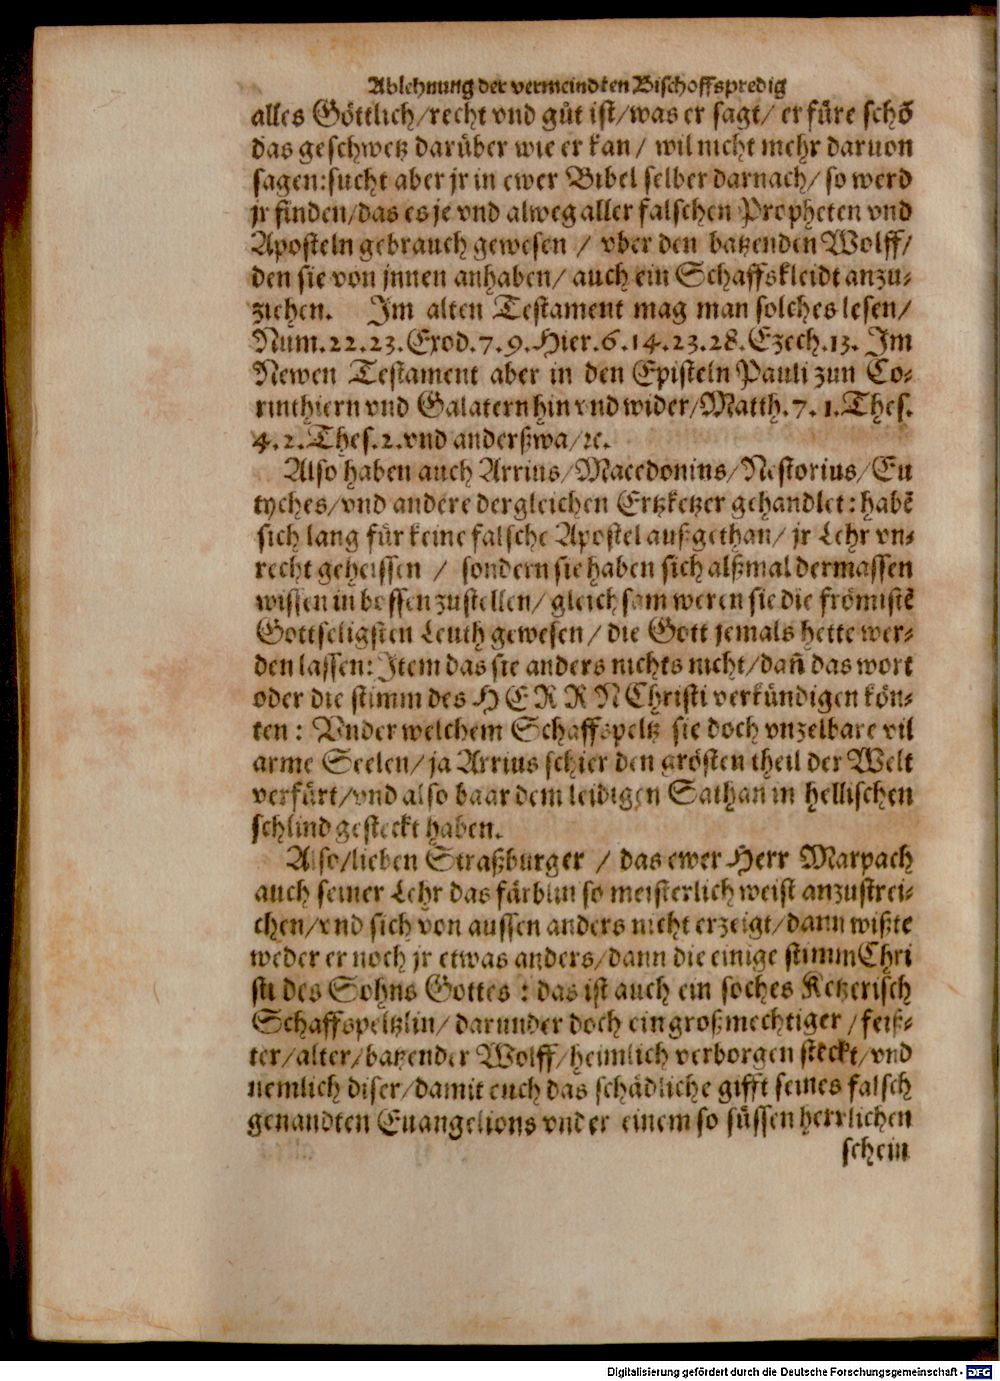 Ablehnung der vermeindten Bischoffspredig
alles Göttlich/recht vnd gůt ist/was er sagt/ er füre schö
das geschwetz darüber wie er kan/ wil nicht mehr daruon
sagen:sucht aber jr in ewer Bibel selber darnach/ so werd
jr finden/das es je vnd alweg aller falschen Propheten vnd
Aposteln gebrauch gewesen / vber den batzenden Wolff/
den sie von jnnen anhaben/ auch ein Schaffskleidt anzu⸗
ziehen. Im alten Testament mag man solches lesen/
Num.22.23.Exod.7.9.Hier.6.14.23.28.Ezech.13. Im
Newen Testament aber in den Episteln Pauli zun Co⸗
rinthiern vnd Galatern hin vnd wider/Matth.7.1.Thes.
4.2.Thes.2.vnd anderßwa/ꝛc.
Also haben auch Arrius/Macedonius/Nestorius/Eu
tyches/vnd andere dergleichen Ertzketzer gehandlet: habē
sich lang für keine falsche Apostel außgethan/ jr Lehr vn⸗
recht geheissen / sondern sie haben sich alßmal dermassen
wissen in bossen zustellen/ gleichsam weren sie die frömistē
Gottseligsten Leuth gewesen/ die Gott jemals hette wer⸗
den lassen: Item das sie anders nichts nicht/dañ das wort
oder die stimm des HERRN Christi verkündigen kön⸗
ten : Vnder welchem Schaffspeltz sie doch vnzelbare vil
arme Seelen/ ja Arrius schier den grösten theil der Welt
verfürt/vnd also baar dem leidigen Sathan in hellischen
schlind gesteckt haben.
Also/lieben Straßburger / das ewer Herr Marpach
auch seiner Lehr das färblin so meisterlich weist anzustrei⸗
chen/vnd sich von aussen anders nicht erzeigt/dann wißte
weder er noch jr etwas anders/dann die einige stimm Chri
sti des Sohns Gottes : das ist auch ein soches Ketzerisch
Schaffspeltzlin/ darunder doch ein großmechtiger /feiß⸗
ter/alter/batzender Wolff/heimlich verborgen steckt/vnd
nemlich diser/damit euch das schädliche gifft seines falsch
genandten Euangelions vnder einem so süssen herrlichen
schein
Digitalisierung gefördert durch die Deutsche Forschungsgemeinschaft - DFG